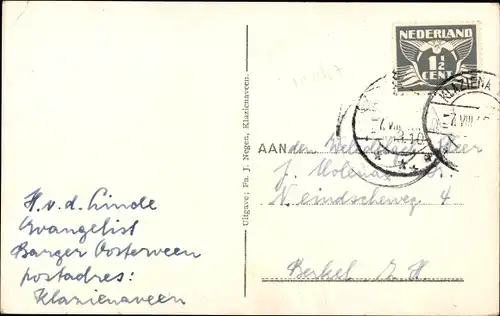 H. v. d. Linde
Evangelist
Barger Oosterveen
postadres:
Klazienaveen
Uitgave: Fa. J. Negen, Klazienaveen.
NEDERLAND
1½
CENT
KLAZIENA
7 VIII
7 VIII
AAN den Weledelgeb. Heer
J. Molenaar
Noordeindscheweg 4
Berkel Z. H.